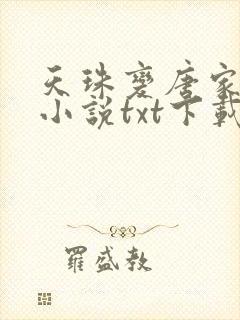 天珠變唐家
小說txt下載
羅盛教